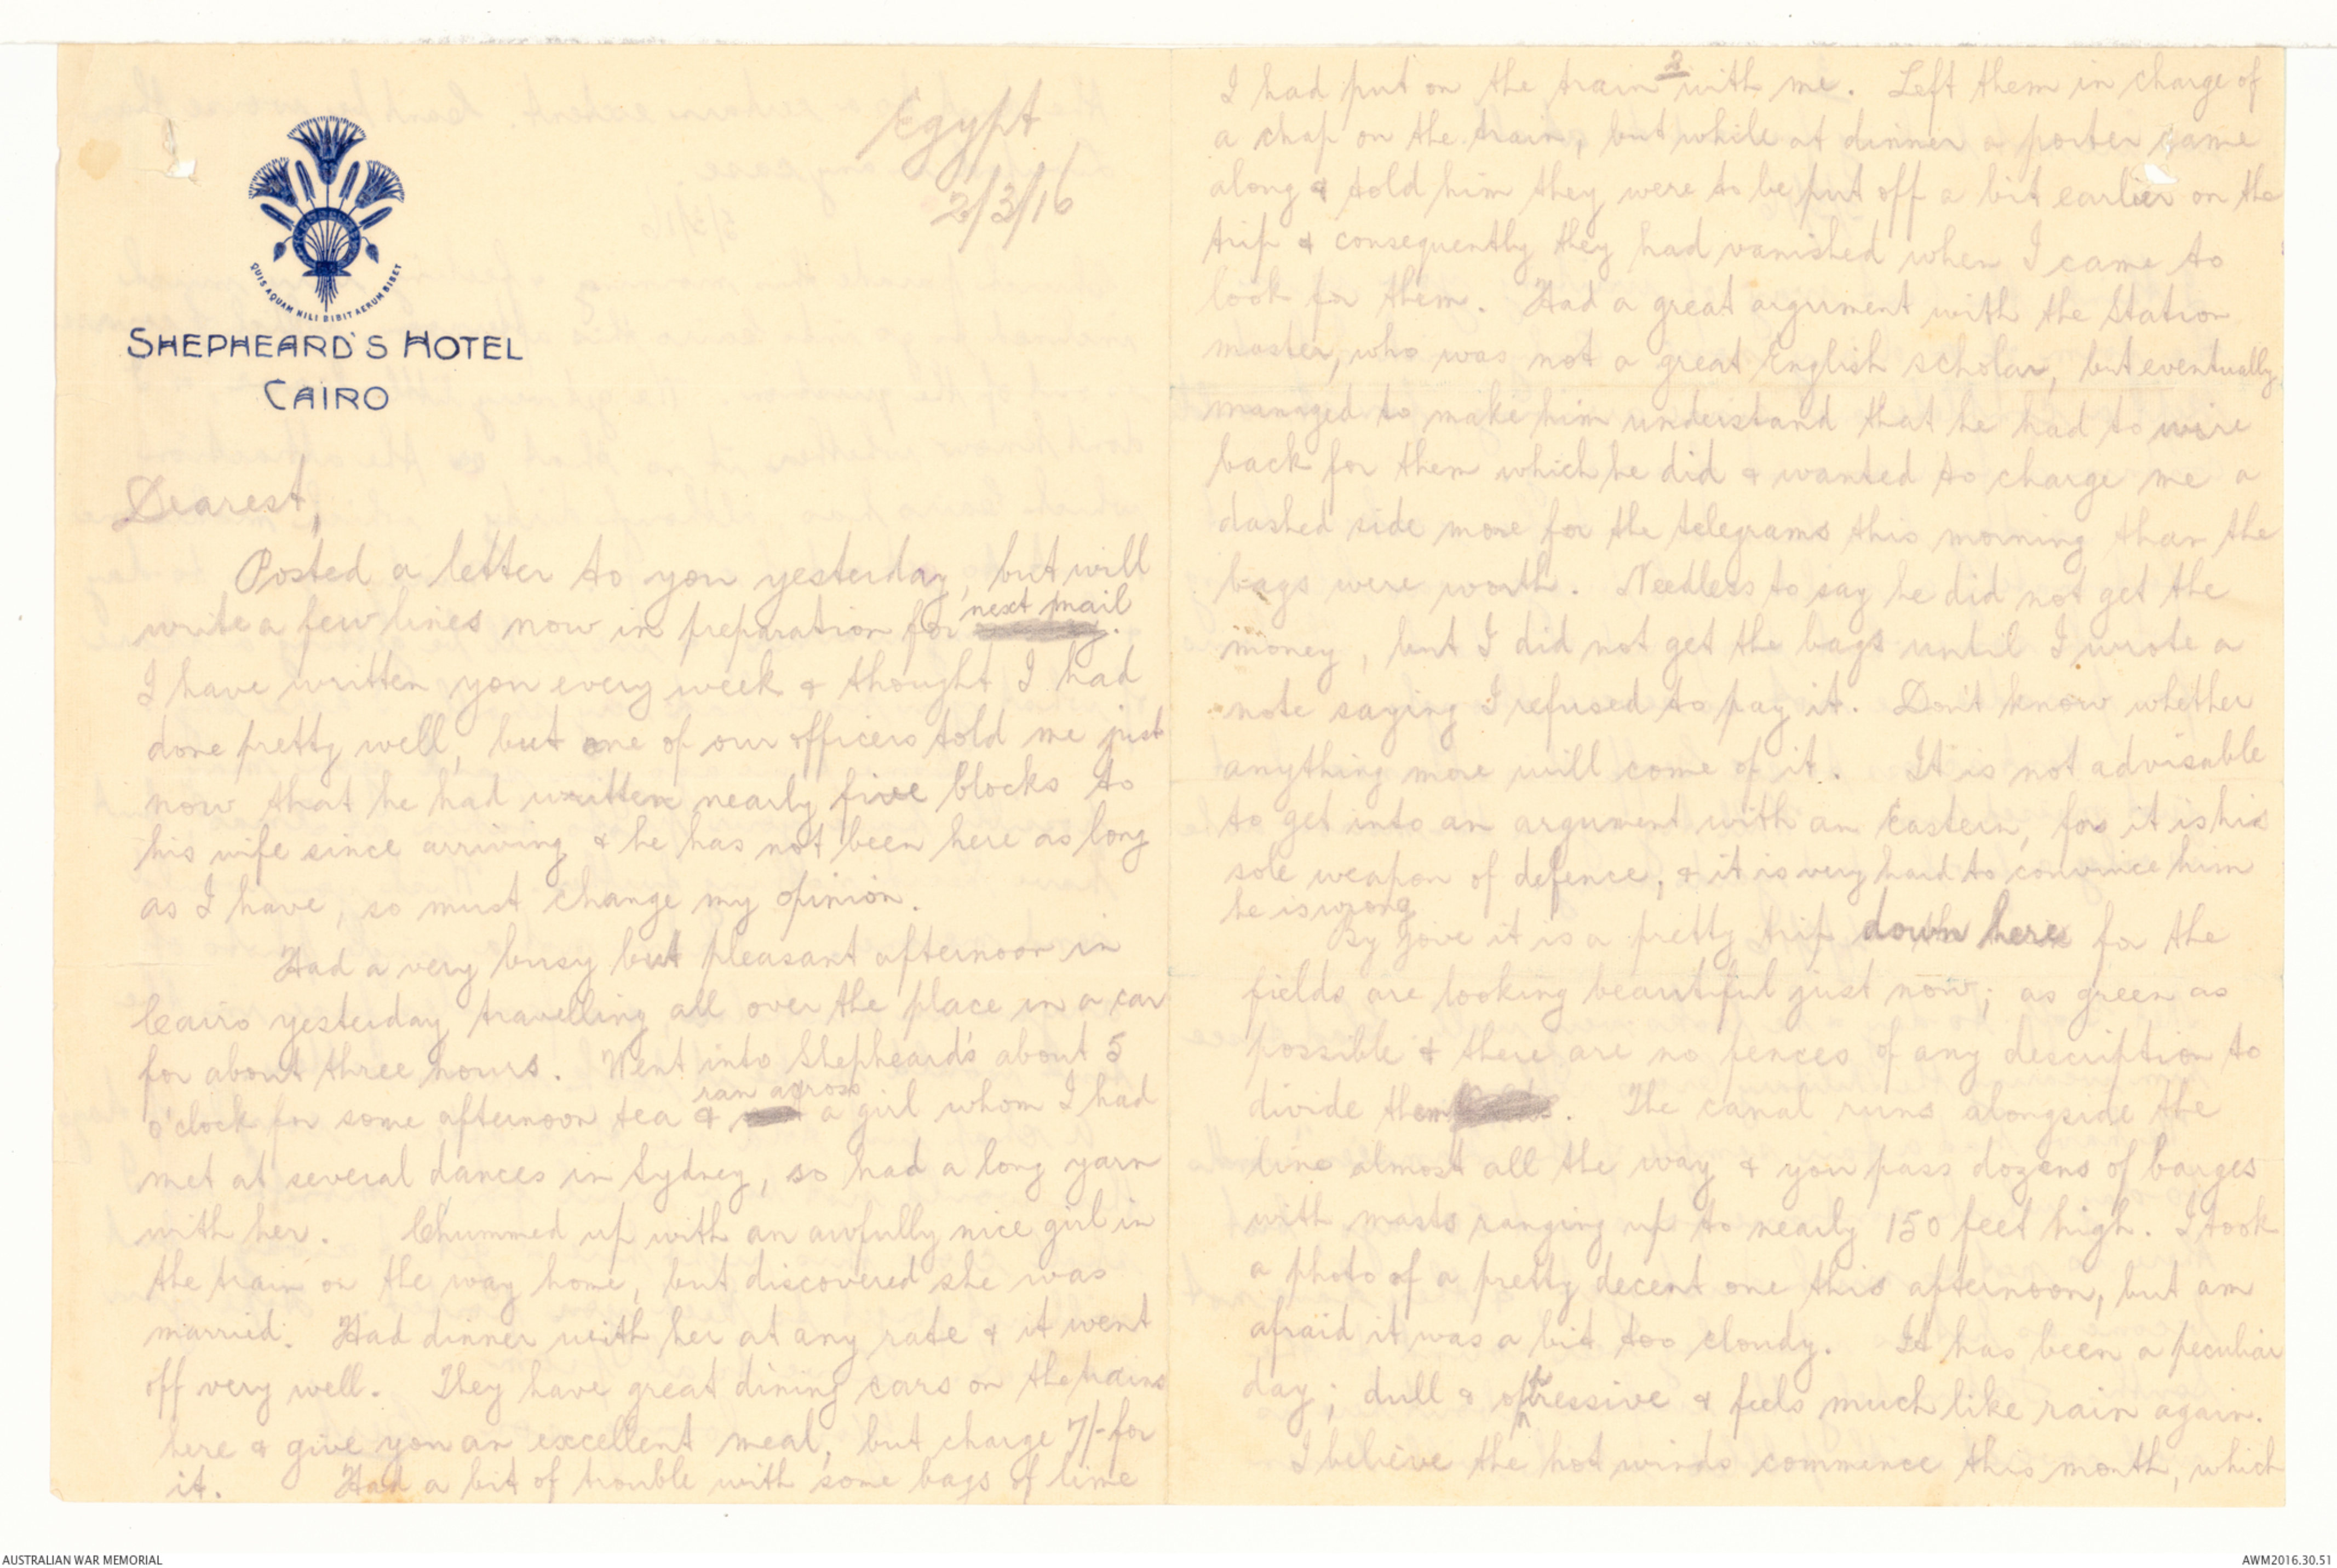 QUIS AQUAM NILI BIBIT AERUM BIBET
SHEPHEARD'S HOTEL
CAIRO
Egypt
2/3/16
Dearest,
Posted a letter to you yesterday, but will
write a few lines now in preparation for next mail.
I have written you every week & thought I had
done pretty well, but one of our officers told me just
now that he had written nearly five blocks to
his wife since arriving & he has not been here as long
as I have, so must change my opinion.
Had a very busy but pleasant afternoon in
Cairo yesterday travelling all over the place in a car
for about three hours. Went into Shepheard's about 5
o'clock for some afternoon tea & ran across a girl whom I had
met at several dances in Sydney, so had a long yarn
with her. Chummed up with an awfully nice girl in
the train on the way home, but discovered she was
married. Had dinner with her at any rate & it went
off very well. They have great dining cars on the trains
here & give you an excellent meal, but charge 7/- for
it. Had a bit of trouble with some bags of lime
2
I had put on the train with me. Left them in charge of
a chap on the train, but while at dinner a porter came
along & told him they were to be put off a bit earlier on the
trip & consequently they had vanished when I came to
look for them. Had a great argument with the Station
master, who was not a great English scholar, but eventually
managed to make him understand that he had to wire
back for them which he did & wanted to charge me a
dashed side more for the telegrams this morning than the
bags were worth. Needless to say he did not get the
money, but I did not get the bags until I wrote a
note saying I refused to pay it. Don't know whether
anything more will come of it. It is not advisable
to get into an argument with an Eastern, for it is his
sole weapon of defence, & it is very hard to convince him
he is wrong
By Jove it is a pretty trip down here for the
fields are looking beautiful just now; as green as
possible & there are no fences of any description to
divide them. The canal runs alongside the
line almost all the way & you pass dozens of barges
with masts ranging up to nearly 150 feet high. I took
a photo of a pretty decent one this afternoon, but am
afraid it was a bit too cloudy. It has been a peculiar
day; dull & oppressive & feels much like rain again.
I believe the hot winds commence this month, which
AUSTRALIAN WAR MEMORIAL
AWM2016.30.51